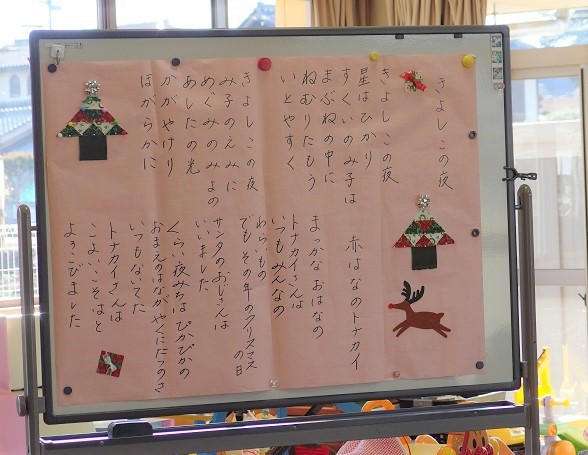 きよしこの夜
きよしこの夜
星はひかり
すくいのみ子は
まぶねの中に
ねむりたもう
いとやすく
きよしこの夜
み子のえみに
めぐみのみよの
あしたの光
かがやけり
ほがらかに
赤はなのトナカイ
まっかなおはなの
トナカイさんは
いつもみんなの
わらいもの
でもその年のクリスマスの日
サンタのおじさんは
いいました
くらい夜みちはぴかぴかの
おまえのはながやくにたつのさ
いつもないてた
トナカイさんは
こよいこそはと
よろこびました